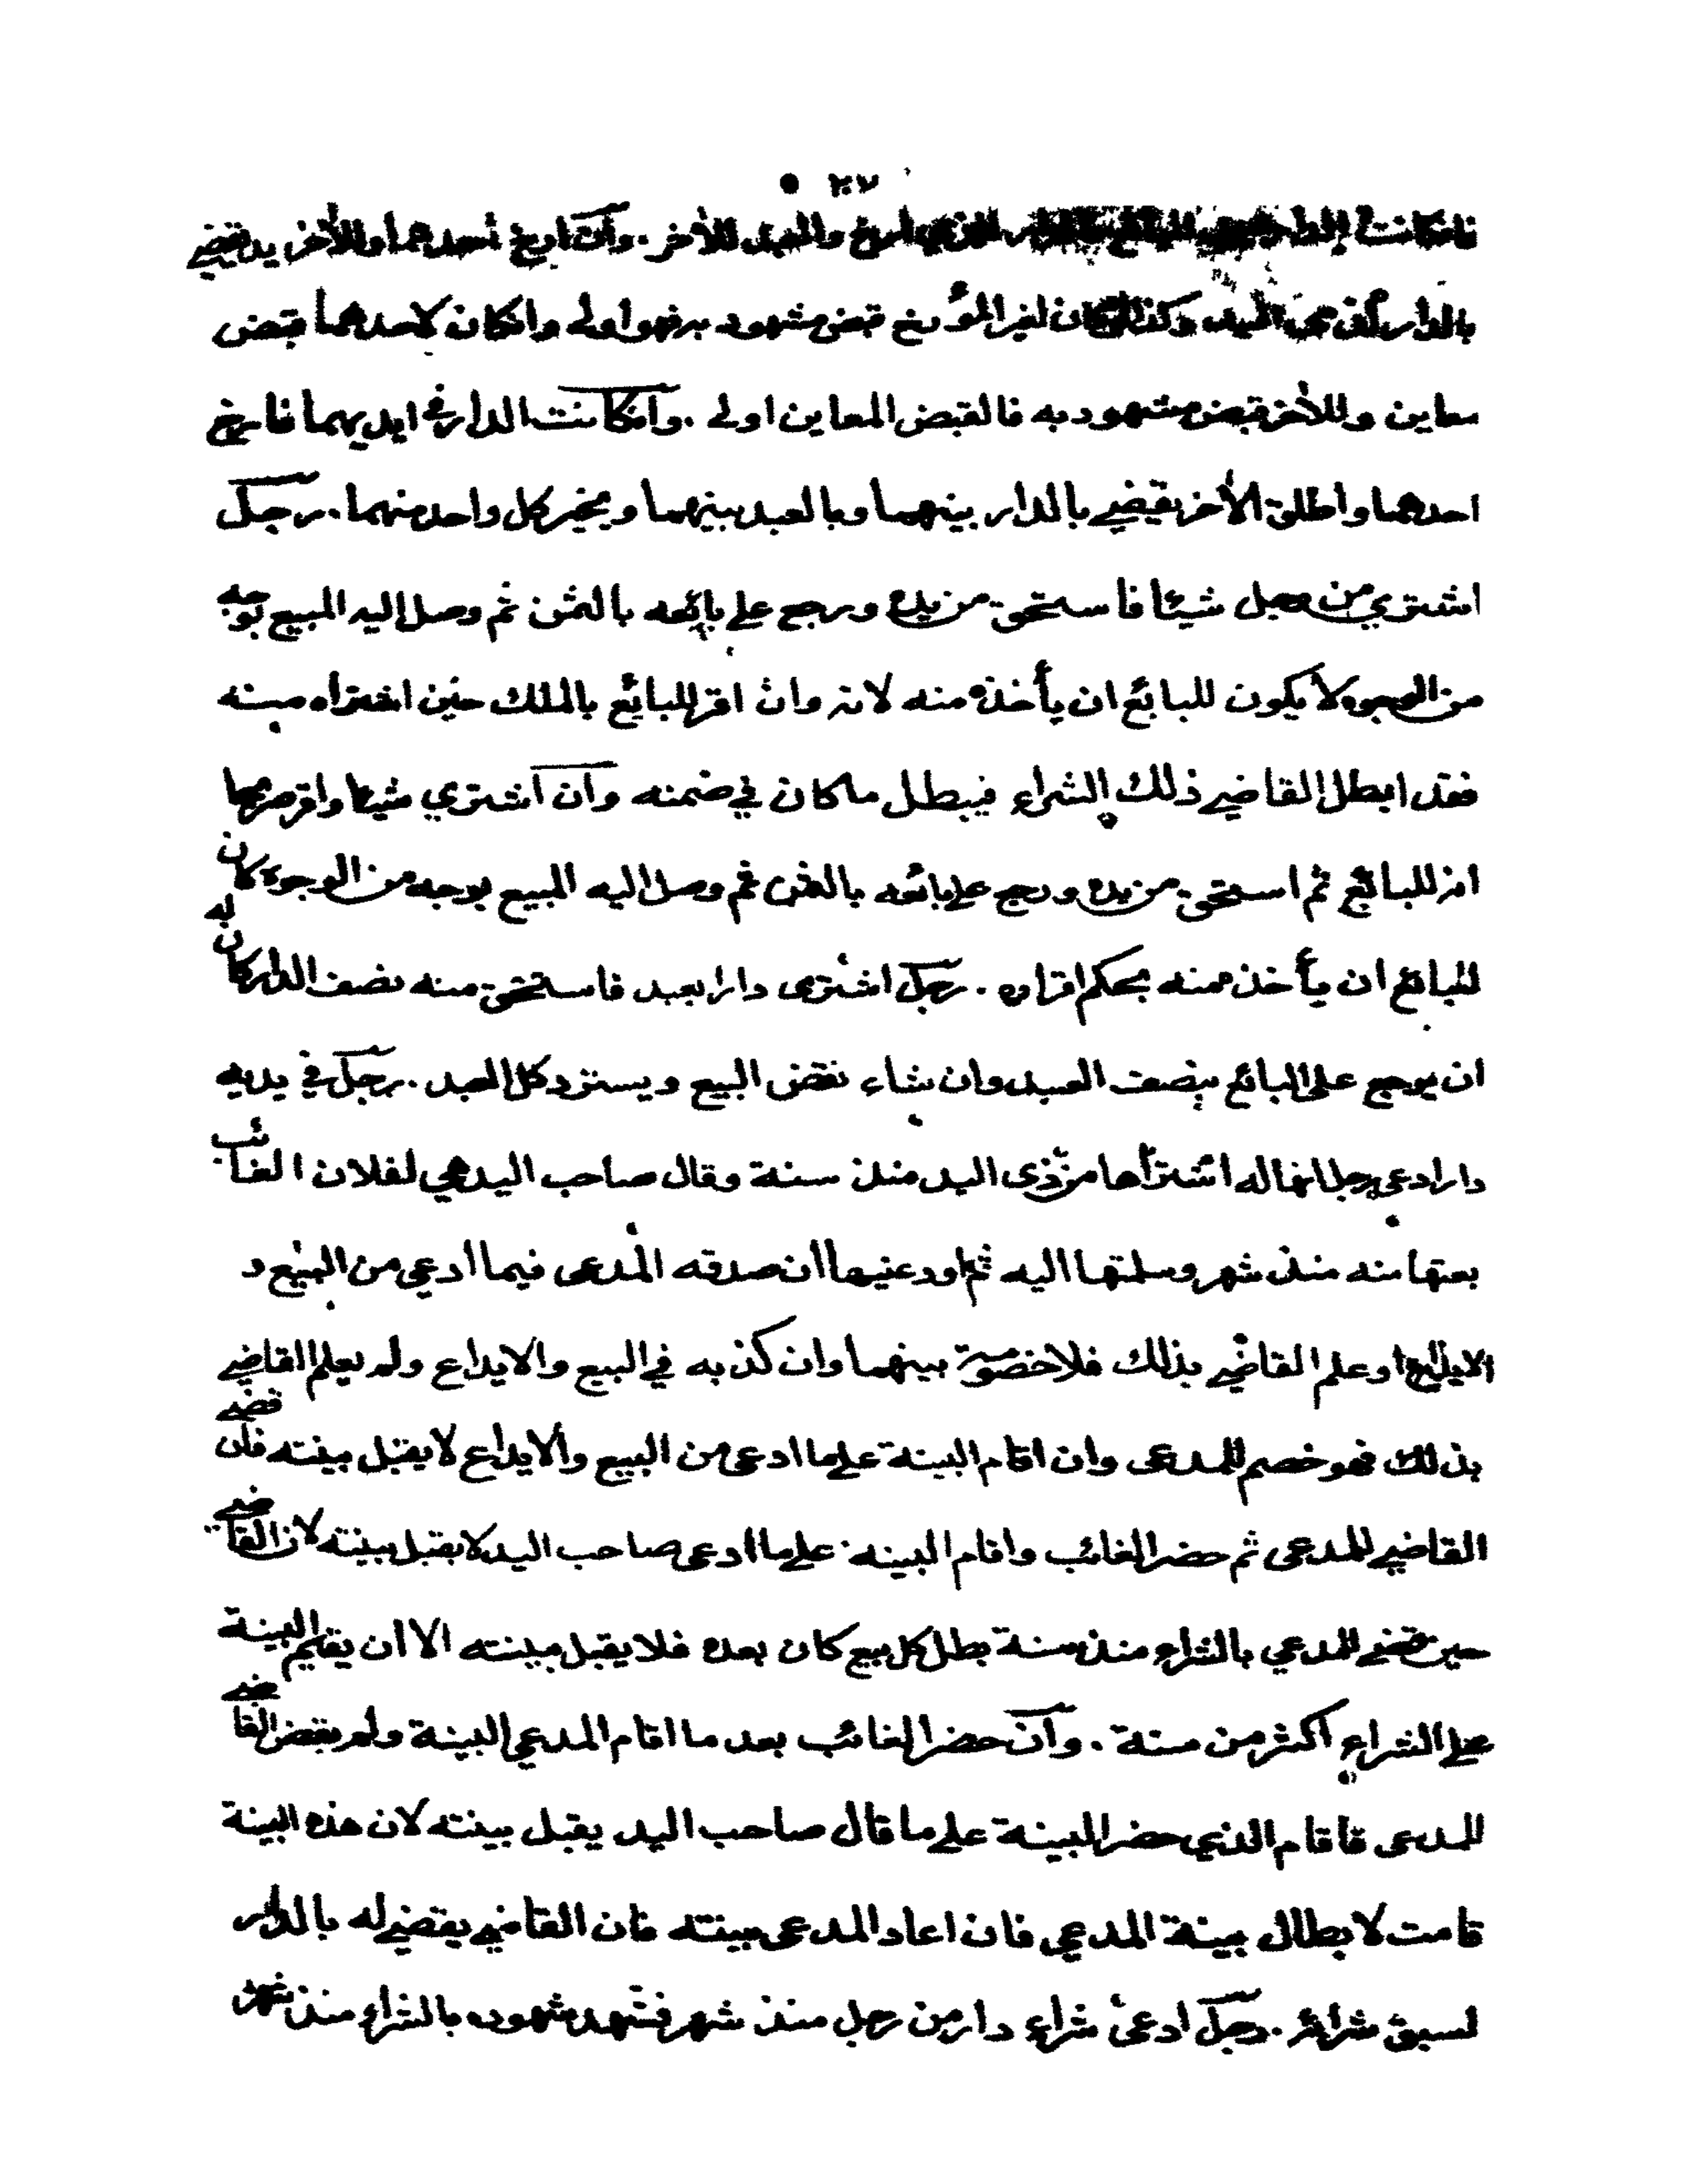 ٢٠٧
فان كانت والعبد للآخر . وان ارخ احدهما وللآخر يد يقضي
بالدار لغير المؤرخ قبض مشهود به فهو اولى وان كان لاحدهما قبض
معاين وللآخر قبض مشهود به فالقبض المعاين اولى . وان كانت الدار في ايديهما فارخ
احدهما واطلق الآخر يقضي بالدار بينهما وبالعبد بينهما ويخير كل واحد منهما . رجل
اشترى من رجل شيئا فاستحق من يده ورجع على بائعه بالثمن ثم وصل اليه المبيع بوجه
من الوجوه لا يكون للبائع ان يأخذه منه لانه وان اقر للبائع بالملك حين اشتراه منه
فقد ابطل القاضي ذلك الشراء فيبطل ما كان في ضمنه وان اشترى شيئا واقر صريحا
انه للبائع ثم استحق من يده ورجع على بائعه بالثمن ثم وصل اليه المبيع بوجه من الوجوه كان
للبائع ان يأخذ منه بحكم اقراره . رجل اشترى دارا بعبد فاستحق منه نصف الدار كان له
ان يرجع على البائع بنصف العبد وان شاء نقض البيع ويسترد كل العبد . رجل في يديه
دار ادعى رجل انها له اشتراها من ذي اليد منذ سنة وقال صاحب اليد هي لفلان الغائب
بعتها منه منذ شهر وسلمتها اليه ثم اودعنيها ان صدقه المدعى فيما ادعى من البيع و
الايداع او علم القاضي بذلك فلا خصومة بينهما وان كذبه في البيع والايداع ولم يعلم القاضي
بذلك فهو خصم للمدعى وان اقام البينة على ما ادعى من البيع والايداع لا يقبل بينته فان قضى
القاضي للمدعى ثم حضر الغائب واقام البينه على ما ادعى صاحب اليد لا يقبل بينته لان القاضي
حين قضى للمدعي بالشراء منذ سنة بطل كل بيع كان بعده فلا يقبل بينته الا ان يقيم البينة
على الشراء اكثر من سنة . وان حضر الغائب بعد ما اقام المدعي البينة ولم يقض القاضي
للمدعى فاقام الذي حضر البينة على ما قال صاحب اليد يقبل بينته لان هذه البينة
قامت لابطال بينة المدعي فان اعاد المدعى بينته فان القاضي يقضي له بالدار
لسبق شرائه . رجل ادعى شراء دار من رجل منذ شهر فشهد شهوده بالشراء منذ شهر